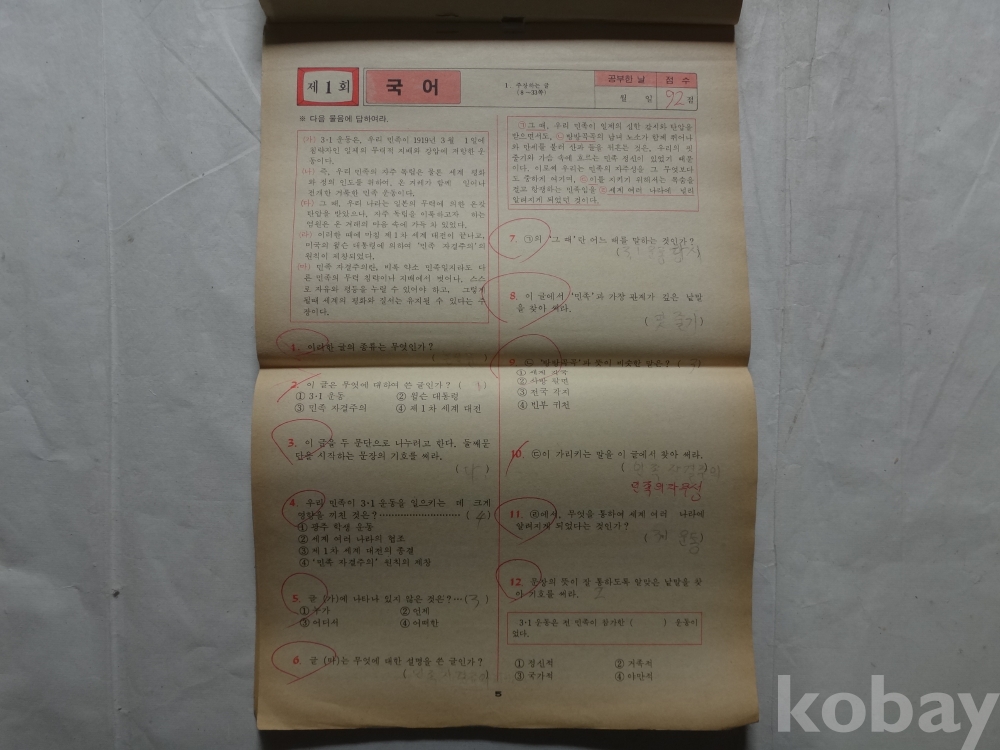 제 1 회
국 어
1. 주장하는 글
(8~33쪽)
공부한 날
점 수
월 일
92점
※ 다음 물음에 답하여라.
(가) 3·1 운동은, 우리 민족이 1919년 3월 1일에
침략자인 일제의 무력적 지배와 강압에 저항한 운
동이다.
(나) 즉, 우리 민족의 자주 독립은 물론 세계 평화
와 정의 인도를 위하여, 온 겨레가 함께 일어나
전개한 거룩한 민족 운동이다.
(다) 그 때, 우리 나라는 일본의 무력에 의한 온갖
탄압을 받았으나, 자주 독립을 이룩하고자 하는
염원은 온 겨레의 마음 속에 가득 차 있었다.
(라) 이러한 때에 마침 제 1 차 세계 대전이 끝나고,
미국의 윌슨 대통령에 의하여 '민족 자결주의'의
원칙이 제창되었다.
(마) 민족 자결주의란, 비록 약소 민족일지라도 다
른 민족의 무력 침략이나 지배에서 벗어나, 스스
로 자유와 평등을 누릴 수 있어야 하고, 그렇게
될때 세계의 평화와 질서는 유지될 수 있다는 주
장이다.
1. 이러한 글의 종류는 무엇인가?
2. 이 글은 무엇에 대하여 쓴 글인가? ( 1 )
① 3·1 운동 ② 윌슨 대통령
③ 민족 자결주의 ④ 제 1 차 세계 대전
3. 이 글을 두 문단으로 나누려고 한다. 둘째문
단을 시작하는 문장의 기호를 써라.
( 다 )
4. 우리 민족이 3·1 운동을 일으키는 데 크게
영향을 끼친 것은? ( 4 )
① 광주 학생 운동
② 세계 여러 나라의 협조
③ 제 1 차 세계 대전의 종결
④ '민족 자결주의' 원칙의 제창
5. 글 (가)에 나타나 있지 않은 것은?…( 3 )
① 누가 ② 언제
③ 어디서 ④ 어떠한
6. 글 (마)는 무엇에 대한 설명을 쓴 글인가?
(민족 자결주의)
㉠그 때, 우리 민족이 일제의 심한 감시와 탄압을
받으면서도, ㉡방방곡곡의 남녀 노소가 함께 뛰어나
와 만세를 불러 산과 들을 뒤흔든 것은, 우리의 핏
줄기와 가슴 속에 흐르는 민족 정신이 있었기 때문
이다. 이로써 우리는 민족의 자주성을 그 무엇보다
도 중하게 여기며, ㉢이를 지키기 위해서는 목숨을
걸고 항쟁하는 민족임을 ㉣세계 여러 나라에 널리
알려지게 되었던 것이다.
7. ㉠의 '그 때'란 어느 때를 말하는 것인가?
8. 이 글에서 '민족'과 가장 관계가 깊은 낱말
을 찾아 써라.
(핏 줄기)
9. ㉡ '방방곡곡'과 뜻이 비슷한 말은? ( 3 )
② 사방 팔면
③ 전국 각지
④ 빈부 귀천
10. ㉢이 가리키는 말을 이 글에서 찾아 써라.
민족의 자주성
11. ㉣에서, 무엇을 통하여 세계 여러 나라에
알려지게 되었다는 것인가?
12. 문장의 뜻이 잘 통하도록 알맞은 낱말을 찾
아 기호를 써라. 2
3·1 운동은 전 민족이 참가한 ( ) 운동이
었다.
① 정신적 ② 거족적
③ 국가적 ④ 야만적
5
kobay